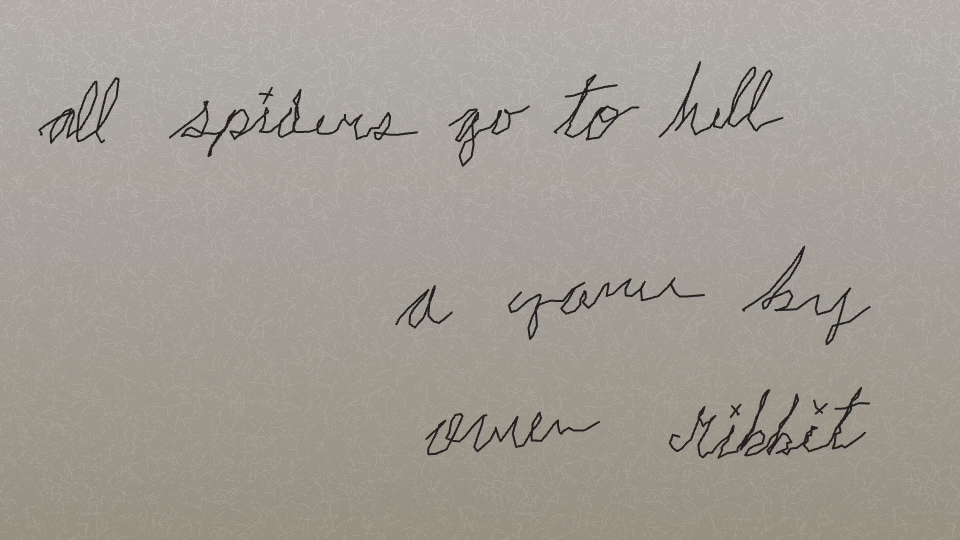 all spiders go to hell
a game by
owen ribbit